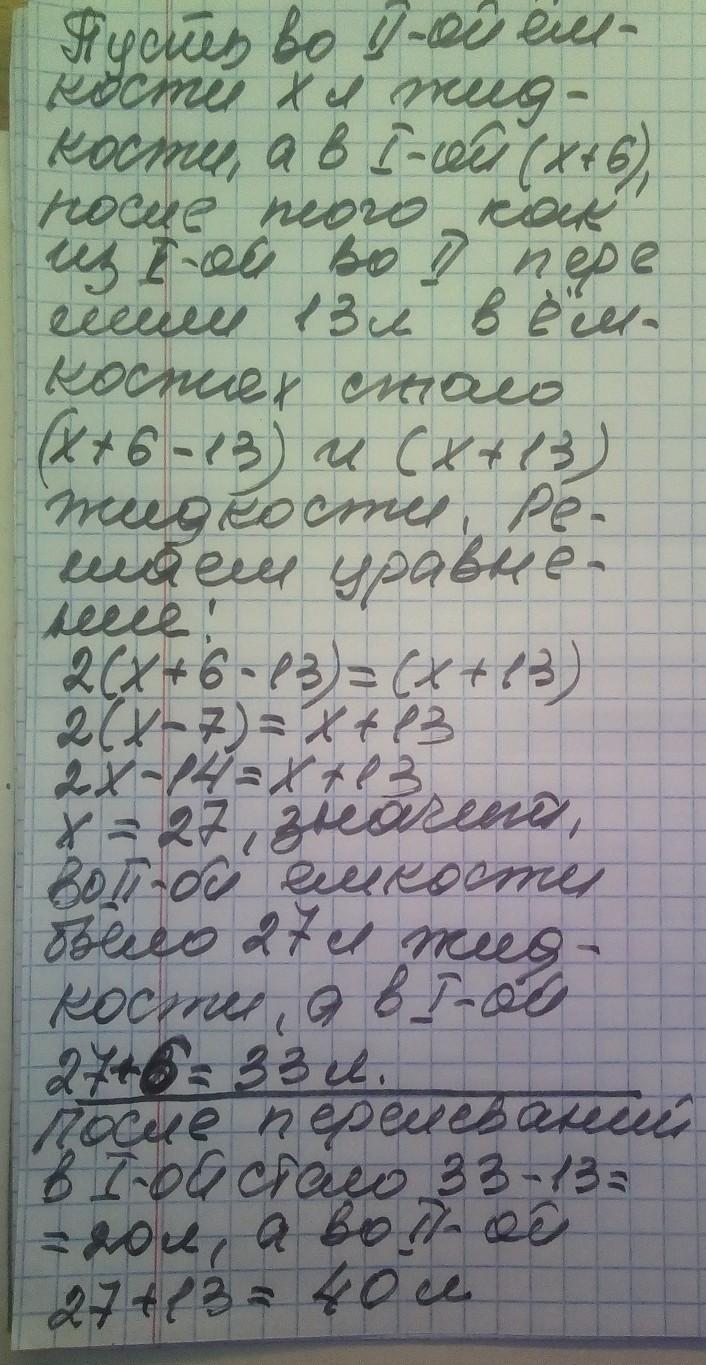 Пусть во II-ой ём-
кости x л жид-
кости, а в I-ой (x+6),
после того как
из I-ой во II пере
лили 13л в ём-
костях стало
(x+6-13) и (x+13)
жидкости. Ре-
шаем уравне-
ние:
2(x+6-13)=(x+13)
2(x-7)= x+13
2x-14=x+13
x = 27, значит,
во II-ой емкости
было 27 л жид-
кости, а в I-ой
27+6= 33 л.
После переливаний
в I-ой стало 33-13=
=20л, а во II-ой
27+13= 40 л